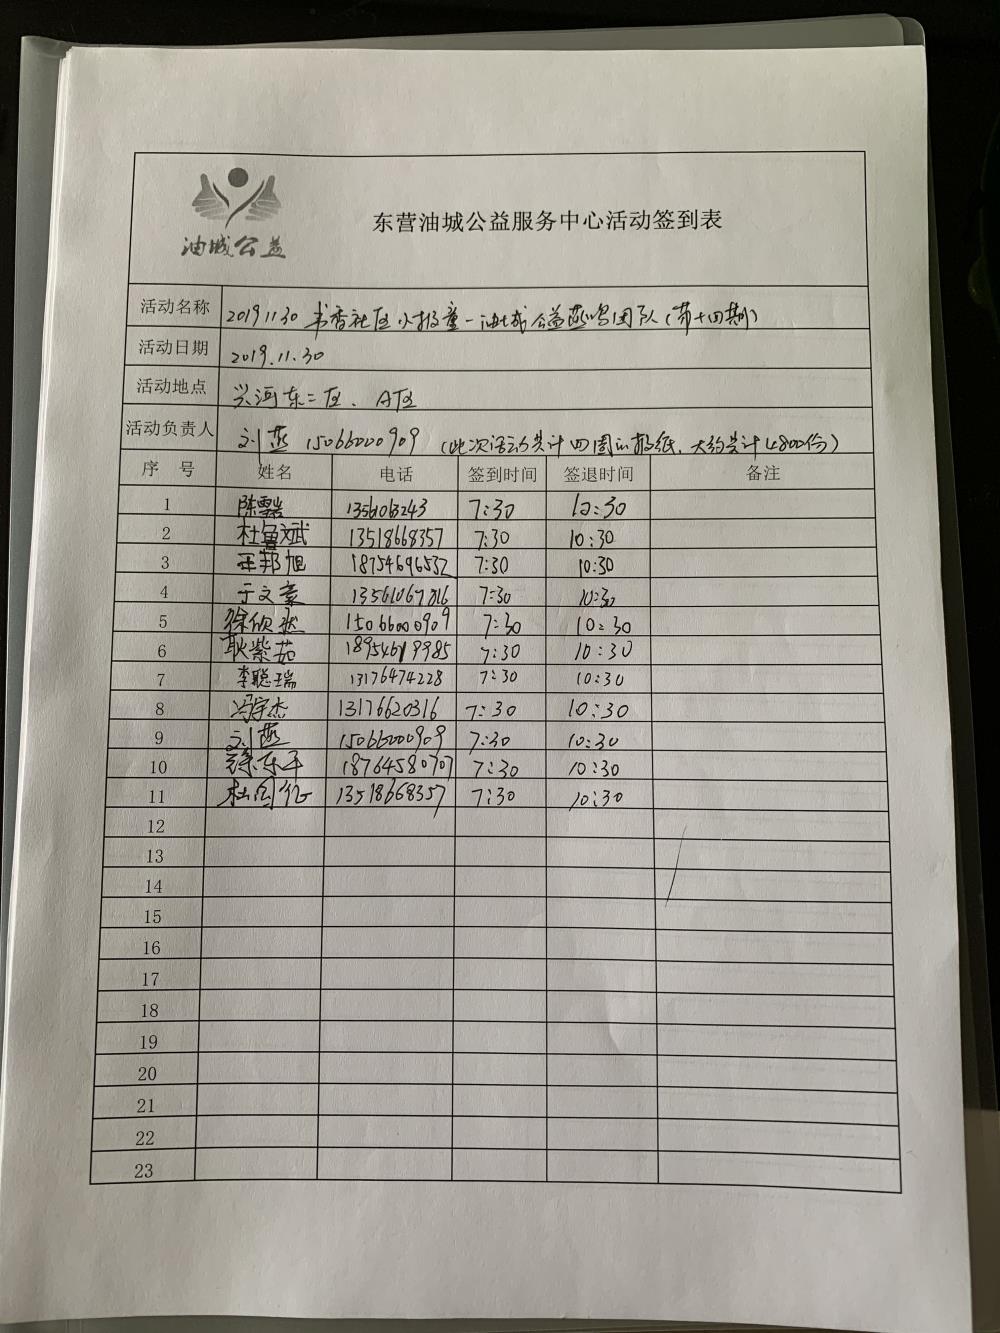 油城公益
东营油城公益服务中心活动签到表
活动名称 20191130 书香社区小报童-油城公益燕鸣团队(第十四期)
活动日期 2019.11.30
活动地点 兴河东二区、A区
活动负责人 刘燕 15066000909 (此次活动共计四周的报纸,大约共计4800份)
序号 姓名 电话 签到时间 签退时间 备注
1 7:30 10:30
2 杜鲁斌 13518668357 7:30 10:30
3 王邦旭 18754696532 7:30 10:30
4 于文豪 7:30 10:30
5 徐欣然 15066000909 7:30 10:30
6 耿紫茹 18954619985 7:30 10:30
7 李聪瑞 13176474228 7:30 10:30
8 冯宇杰 13176620316 7:30 10:30
9 刘燕 15066000909 7:30 10:30
10 徐东平 18764580707 7:30 10:30
11 13518668357 7:30 10:30
12
13
14
15
16
17
18
19
20
21
22
23